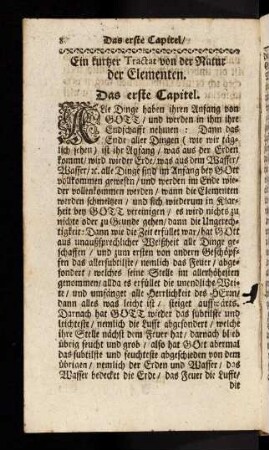 8 Das erste Capitel/
Ein kurtzer Tractat von der Natur
der Elementen.
Das erste Capitel.
ALle Dinge haben ihren Anfang von
GOTT/ und werden in ihm ihre
Endschafft nehmen: Dann das
Ende aller Dingen (wie wir täg-
lich sehen) ist ihr Anfang/ was aus der Erden
kommt/ wird wieder Erde/ was aus dem Wasser/
Wasser/ ꝛc. alle Dinge sind im Anfang bey Gott
vollkommen gewesen/ und werden im Ende wie-
der vollenkommen werden/ wann die Elementen
werden schmeltzen/ und sich wiederum in Klar-
heit bey GOTT vereinigen/ es wird nichts zu
nichte oder zu Grunde gehen/ dann die Ungerech-
tigkeit: Dann wie die Zeit erfüllet war/ hat GOtt
aus unaußsprechlicher Weißheit alle Dinge ge-
schaffen/ und zum ersten von andern Geschöpf-
fen das allersubtilste/ nemlich das Feuer/ abge-
sondert/ welches seine Stelle im allerhöheiten
genommen/ allda es erfüllet die unendliche Wei-
te/ und umfänget alle Herrlichkeit des Himmels
dann alles was leicht ist/ steiget auffwärts.
Darnach hat GOTT wieder das subtilste und
leichteste/ nemlich die Lufft abgesondert/ welche
ihre Stelle nächst dem Feuer hat/ darnach blieb
übrig feucht und grob/ also hat GOtt abermal
das subtilste und feuchteste abgeschieden von dem
übrigen/ nemlich der Erden und Wasser/ das
Wasser bedecket die Erde/ das Feuer die Luffte/
die